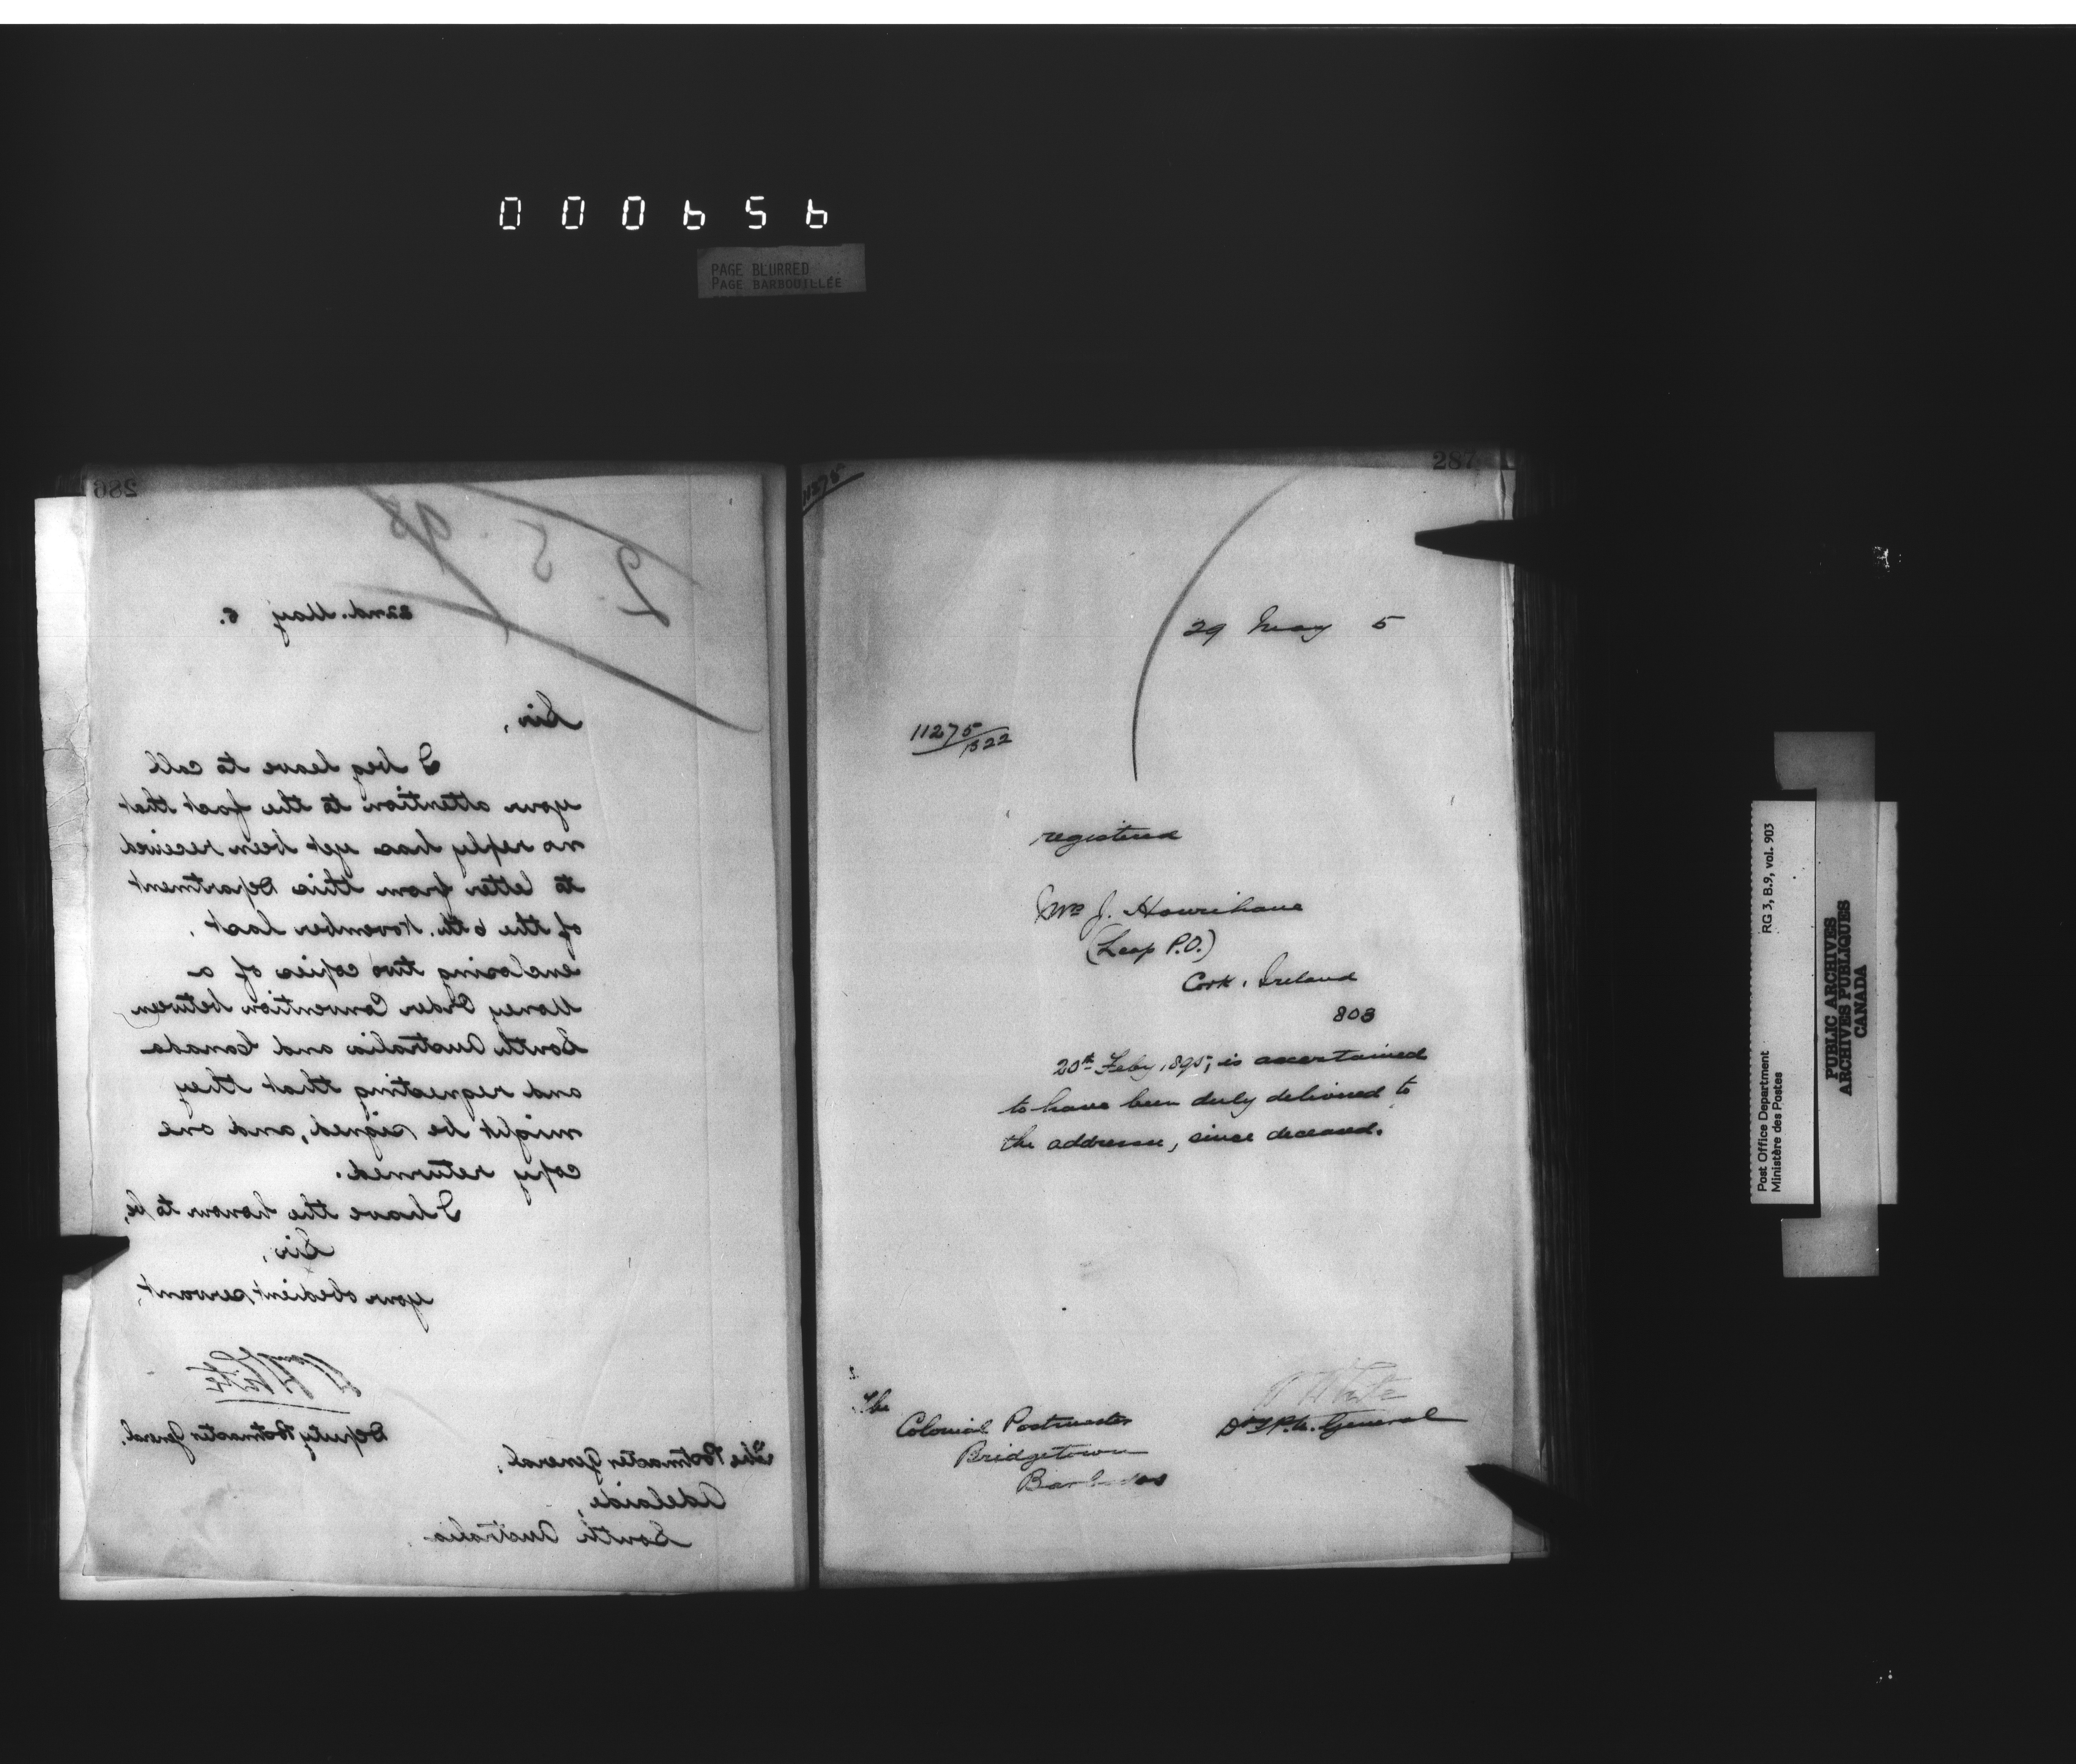 000656
PAGE BLURRED
PAGE BARBOUILLÉE
286
2. 5. 95
22nd. May 5.
Sir,
I beg leave to call
your attention to the fact that
no reply has yet been received
to letter from this Department
of the 6th. November last,
enclosing two copies of a
Money Order Convention between
South Australia and Canada
and requesting that they
might be signed, and one
copy returned.
I have the honour to be,
Sir,
your obedient servant,
White
Deputy Postmaster General.
The Postmaster General,
Adelaide,
South Australia.
287
11275
29 May 5
11275/B22
registered
Mrs J. Hourihane
(Leap P.O.)
Cork, Ireland
803
20th Feby 1895, is ascertained
to have been duly delivered to
the addressee, since deceased.
W White
Dy P.M. General
The
Colonial Postmaster
Bridgetown
Barbados
Post Office Department RG 3, B.9, vol. 903
Ministère des Postes
PUBLIC ARCHIVES
ARCHIVES PUBLIQUES
CANADA